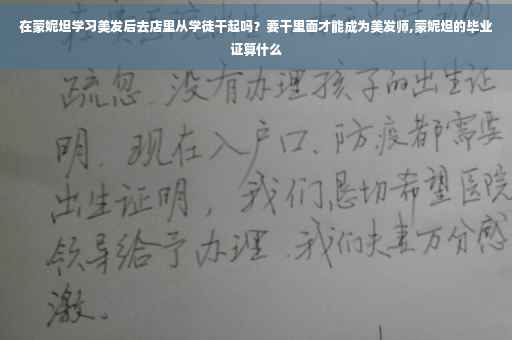 在蒙妮坦学习美发后去店里从学徒干起吗？要干里面才能成为美发师,蒙妮坦的毕业
证算什么
疏忽.没有办理孩子的出生证
明.现在入户口、防疫都需要
出生证明，我们恳切希望医院
领导给予办理.我们夫妻万分感
激。